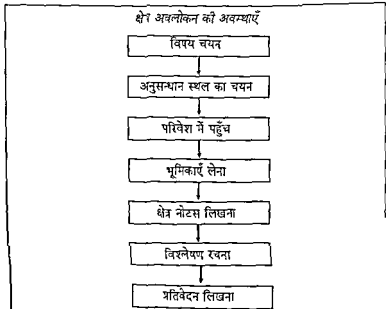 क्षेत्र अवलोकन की अवस्थाएँ
विषय चयन
अनुसन्धान स्थल का चयन
परिवेश में पहुँच
भूमिकाएँ लेना
क्षेत्र नोटस लिखना
विश्लेषण रचना
प्रतिवेदन लिखना